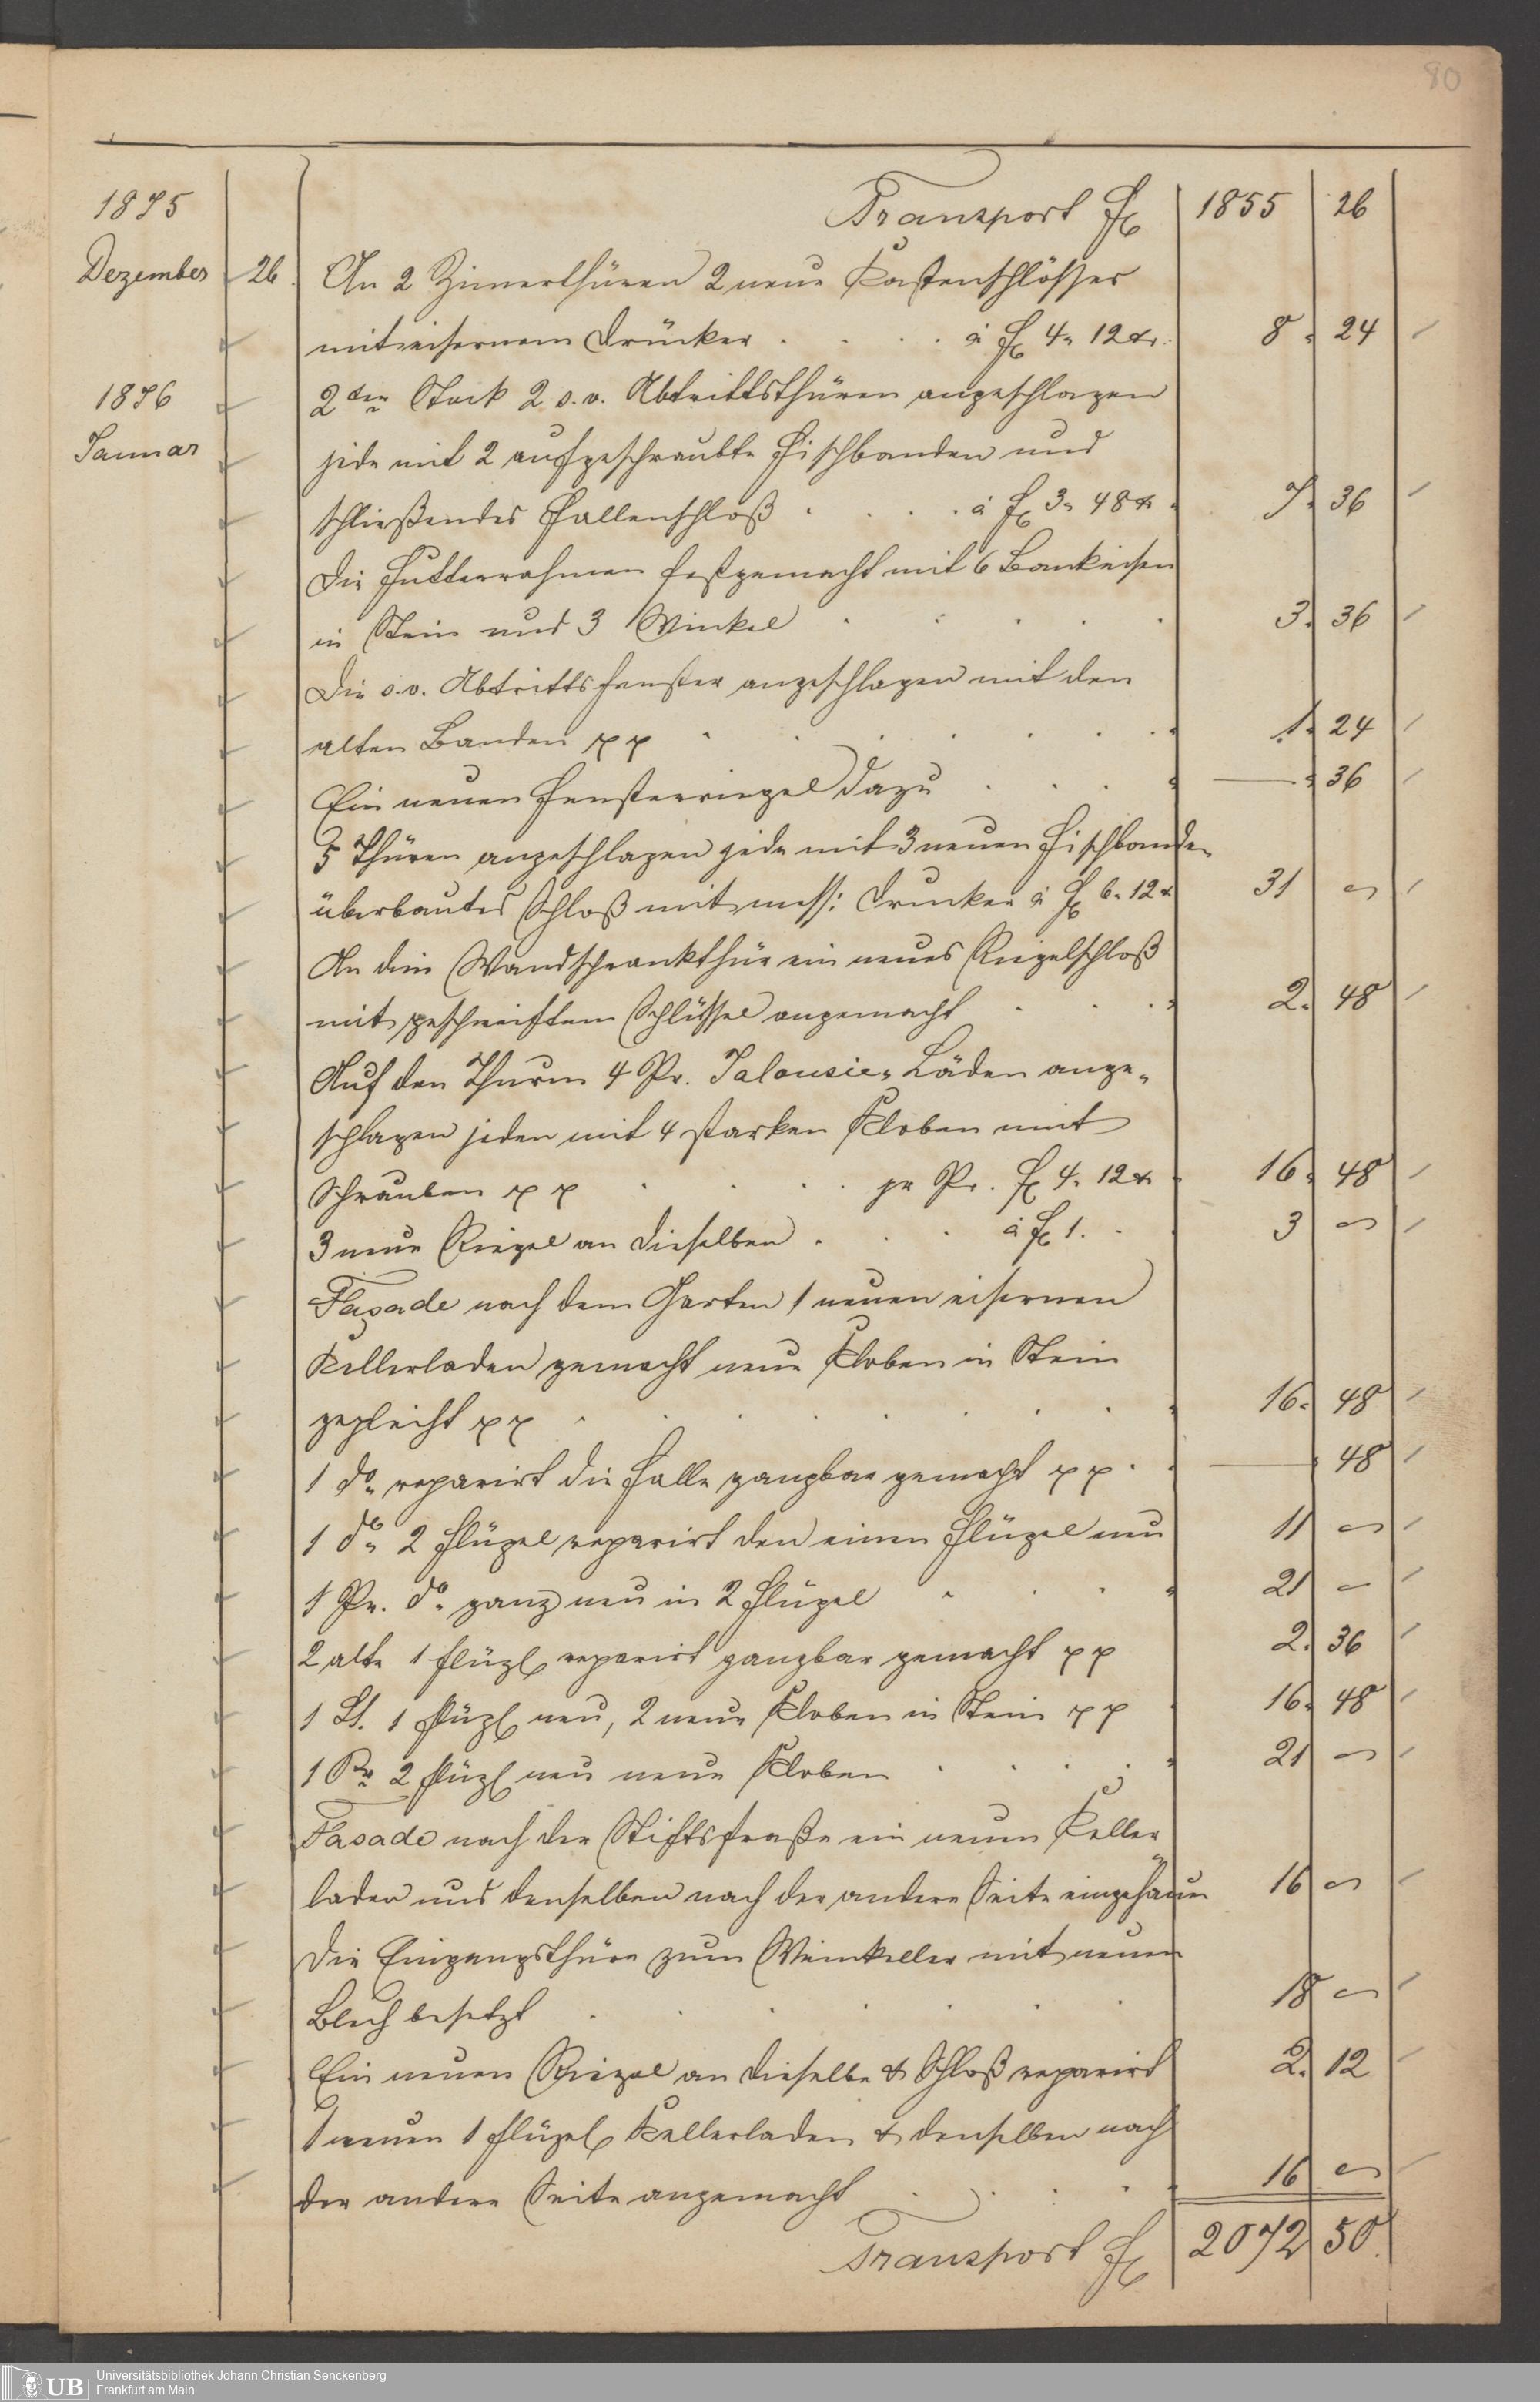 80
Transport fl 1855 26
1875
Dezember 26. An 2 Zimerthüren 2 neue Kastenschlösser
mit eisernem Drücker . . . . à fl 4. 12 xr. 8. 24
1876 2ten Stock 2 s. v. Abtrittsthüren angeschlagen
Januar jede mit 2 aufgeschraubte Fischbanden und
schließendes Fallenschloß . . . . à fl 3. 48 x. 7. 36
Die Futterrahmen festgemacht mit 6 Bankeisen
in Stein und 3 Winkel . . . . . 3. 36
Die s. v. Abtrittsfenster angeschlagen mit den
alten Banden pp . . . . . . . 1. 24
Ein neuen Fensterriegel dazu . . . . — . 36
5 Thüren angeschlagen jede mit 3 neuen Fischbanden
überbautes Schloß mit mess: Drucker à fl 6. 12 x 31 —
An dem Wandschrankthür ein neues Riegelschloß
mit geschweiftem Schlüssel angemacht . . . . 2. 48
Auf den Thurm 4 Pr. Jalousie-Läden ange-
schlagen jeden mit 4 starken Kloben mit
Schrauben pp . . . . pr Pr. fl 4. 12 x . 16. 48
3 neue Riegel an dieselben . . . à fl 1. . . 3 —
Fasade nach dem Garten 1 neuen eisernen
Kellerladen gemacht neue Kloben in Stein
gepleicht pp . . . . . . . . . 16. 48
1 do reparirt die Falle gangbar gemacht pp . . — . 48
1 do 2 Flügel reparirt den einen Flügel neu 11 —
1 Pr. do ganz neu in 2 Flügel . . . . 21 —
2 alte 1 flügl reparirt gangbar gemacht pp 2. 36
1 St. 1 flügl neu, 2 neue Kloben in Stein pp 16. 48
1 Pr 2 flügl neu neue Kloben . . . . 21 —
Fasade nach der Stiftsstraße ein neuen Keller
laden und denselben nach der andere Seite 16 —
Die Eingangsthüre zum Weinkeller mit neuen
Blech besetzt . . . . . . . 18 —
Ein neuen Riegel an dieselbe & Schloß reparirt 2. 12
1 neuen 1 flügel Kellerladen & denselben nach
der andere Seite angemacht . . . . . 16 —
Transport fl 2072 50.
UB Universitätsbibliothek Johann Christian Senckenberg
Frankfurt am Main